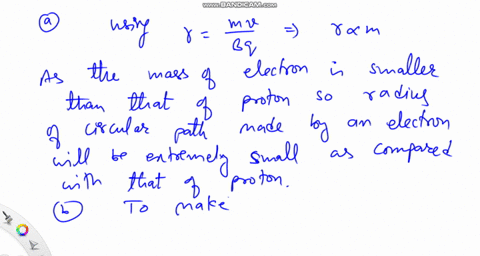 www.BANDICAM.com
(a) using r = mv/Bq ⇒ r ∝ m
As the mass of electron is smaller
than that of proton so radius
of circular path made by an electron
will be extremely small as compared
with that of proton.
(b) To make